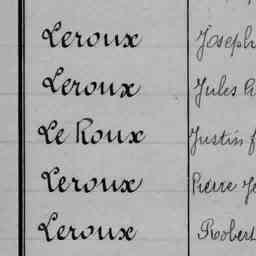 Leroux Joseph
Leroux Jules
Le Roux Justin
Leroux Pierre
Leroux Robert